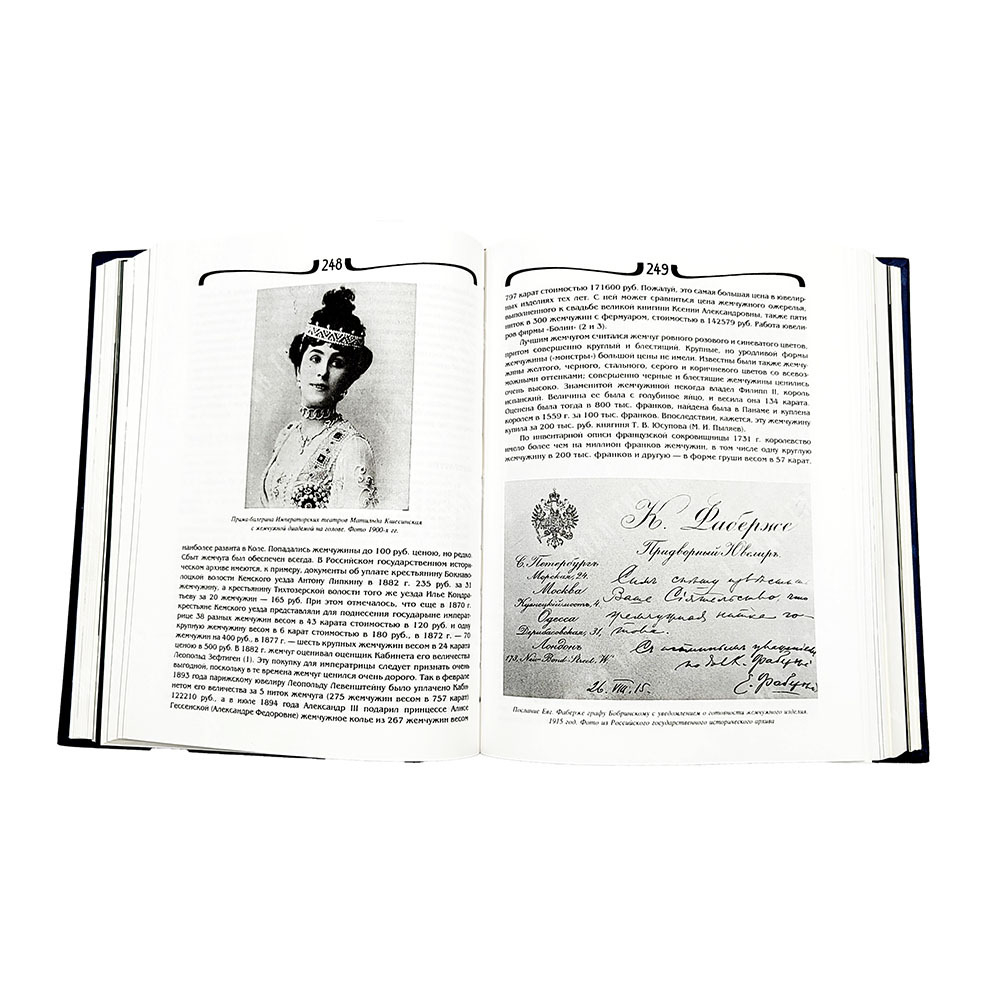 248
Прима-балерина Императорских театров Матильда Кшесинская
с жемчужной диадемой на голове. Фото 1900-х гг.
наиболее развита в Коле. Попадались жемчужины до 100 руб. ценою, но редко.
Сбыт жемчуга был обеспечен всегда. В Российском государственном истори-
ческом архиве имеются, к примеру, документы об уплате крестьянину Бокнаво-
лоцкой волости Кемского уезда Антону Липкину в 1882 г. 235 руб. за 31
жемчужину, а крестьянину Тихтозерской волости того же уезда Илье Кондра-
тьеву за 20 жемчужин — 165 руб. При этом отмечалось, что еще в 1870 г.
крестьяне Кемского уезда представляли для поднесения государыне императ-
рице 38 разных жемчужин весом в 43 карата стоимостью в 120 руб. и одну
крупную жемчужину весом в 6 карат стоимостью в 180 руб., в 1872 г. — 70
жемчужин на 400 руб., в 1877 г. — шесть крупных жемчужин весом в 24 карата
ценою в 500 руб. В 1882 г. жемчуг оценивал оценщик Кабинета его величества
Леопольд Зефтиген (1). Эту покупку для императрицы следует признать очень
выгодной, поскольку в те времена жемчуг ценился очень дорого. Так в феврале
1893 года парижскому ювелиру Леопольду Левенштейну было уплачено Каби-
нетом его величества за 5 ниток жемчуга (275 жемчужин весом в 757 карат)
122210 руб., а в июле 1894 года Александр III подарил принцессе Алисе
Гессенской (Александре Федоровне) жемчужное колье из 267 жемчужин весом
249
797 карат стоимостью 171600 руб. Пожалуй, это самая большая цена в ювелир-
ных изделиях тех лет. С ней может сравниться цена жемчужного ожерелья,
выполненного к свадьбе великой княгини Ксении Александровны, также пяти
ниток в 300 жемчужин с фермуаром, стоимостью в 142579 руб. Работа ювели-
ров фирмы «Болин» (2 и 3).
Лучшим жемчугом считался жемчуг ровного розового и синеватого цветов,
притом совершенно круглый и блестящий. Крупные, но уродливой формы
жемчужины («монстры») большой цены не имели. Известны были также жемчу-
жины желтого, черного, стального, серого и коричневого цветов со всевоз-
можными оттенками; совершенно черные и блестящие жемчужины ценились
очень высоко. Знаменитой жемчужиной некогда владел Филипп II, король
испанский. Величина ее была с голубиное яйцо, и весила она 134 карата.
Оценена была тогда в 800 тыс. франков, найдена была в Панаме и куплена
королем в 1559 г. за 100 тыс. франков. Впоследствии, кажется, эту жемчужину
купила за 200 тыс. руб. княгиня Т. В. Юсупова (М. И. Пыляев).
По инвентарной описи французской сокровищницы 1731 г. королевство
имело более чем на миллион франков жемчужин, в том числе одну круглую
жемчужину в 200 тыс. франков и другую — в форме груши весом в 57 карат.
К. Фаберже
Придворный Ювелиръ.
С. Петербургъ
Морская, 24.
Москва
Кузнецкiй мостъ, 4.
Одесса
Дерибасовская, 31,
Лондонъ
173, New-Bond-Street, W.
Симъ спѣшу извѣстить
Ваше Сіятельство, что
жемчужная нитка го-
това.
Съ
К. Фаберже
Е. Фаберже
26. VIII. 15.
Послание Евг. Фаберже графу Бобринскому с уведомлением о готовности жемчужного изделия.
1915 год. Фото из Российского государственного исторического архива